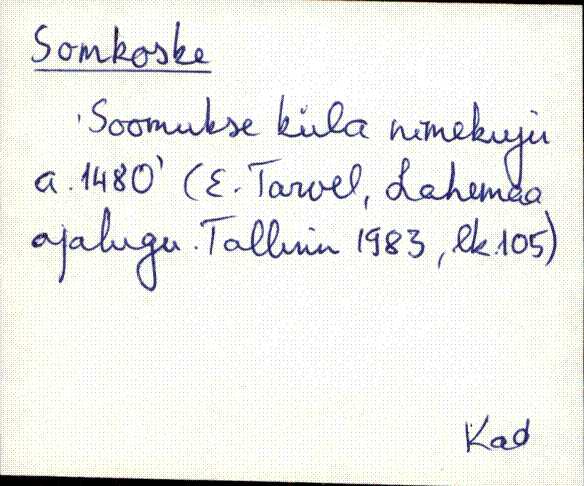 Somkoske
'Soomukse küla nimekuju
a. 1480' (E. Tarvel, Lahemaa
ajalugu. Tallinn 1983, lk. 105)
Kad